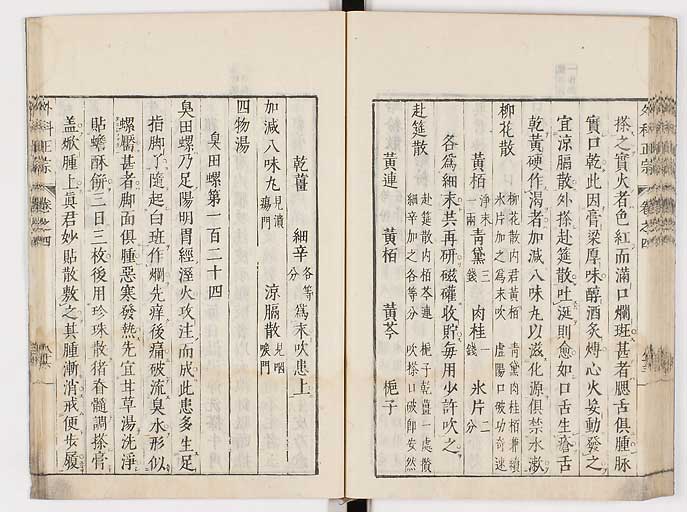 搽之實火者色紅而滿口爛斑甚者腮舌俱腫脉
實口乾此因膏梁厚味醇酒炙煿心火妄動發之
宜凉膈散外搽赴筵散吐涎則愈如口舌生瘡舌
乾黃硬作渴者加減八味丸以滋化源俱禁水漱
柳花散 柳花散內君黃栢 青黛肉桂栢兼續
氷片加之爲末吹 虛陽口破功奇速
黃栢 淨末一兩 青黛 三錢 肉桂 一錢 氷片 二分
各爲細末共再研磁礶收貯每用少許吹之
赴筵散 赴筵散內栢芩連 梔子乾薑一處攢
細辛加之各等分 吹搽口破卽安然
黃連 黃栢 黃芩 梔子
乾薑 細辛 各等分 爲末吹患上
加減八味丸 見潰瘍門 凉膈散 見咽喉門
四物湯
臭田螺第一百二十四
臭田螺乃足陽明胃經溼火攻注而成此患多生足
指脚丫隨起白斑作爛先痒後痛破流臭水形似
螺靨甚者脚面俱腫惡寒發熱先宜甘草湯洗淨
貼蟾酥餅三日三枚後用珍珠散猪脊髓調搽膏
盖焮腫上眞君妙貼散敷之其腫漸消戒便步履
外科正宗 卷之四